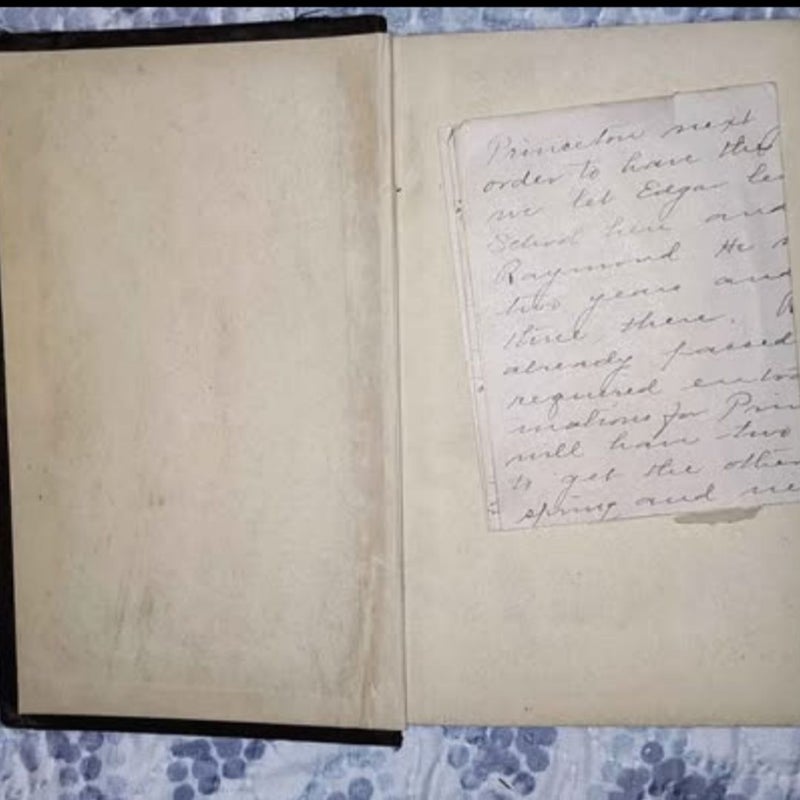 Princeton next
order to have the
we let Edgar le
School here and
Raymond He
two years and
time there.
already passed
required entra
inations for Prin
will have two
to get the other
spring and ne